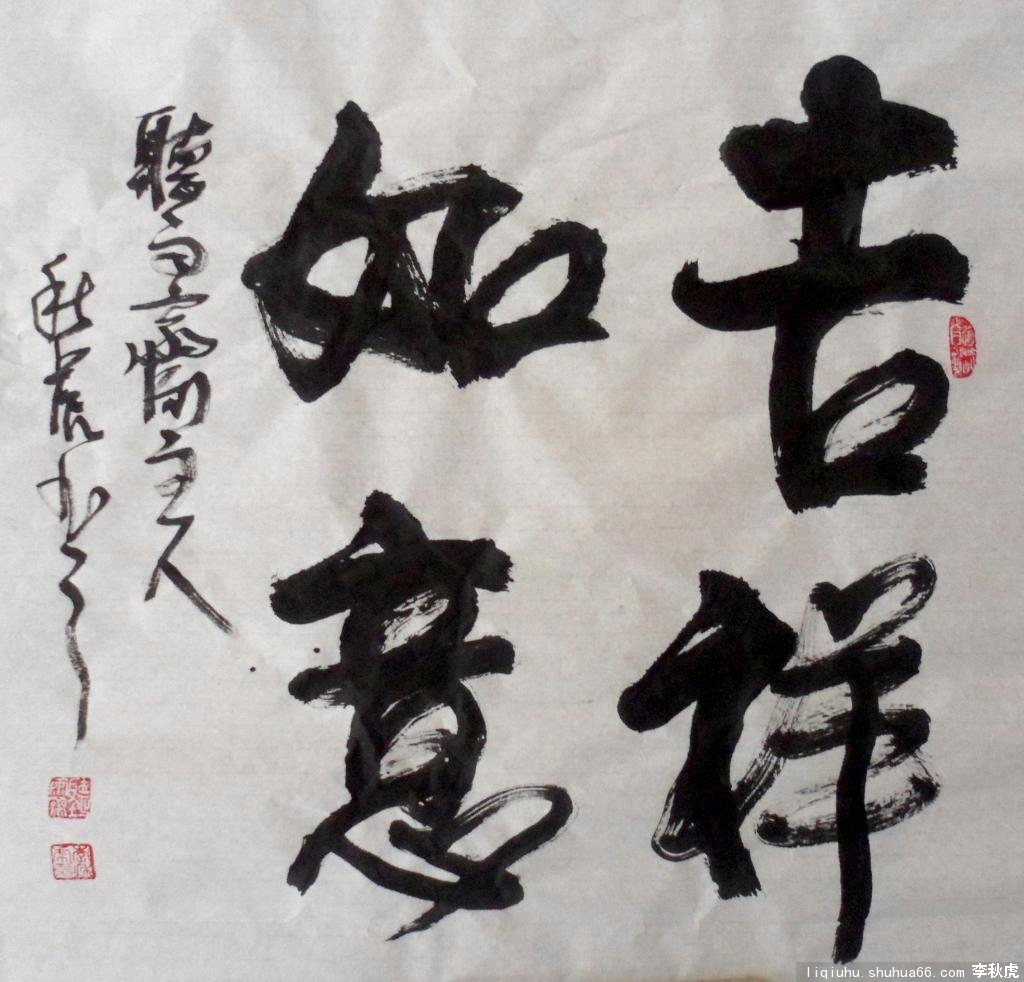 吉祥
如意
聽雨齋主人
秋虎书
liqiuhu.shuhua66.com 李秋虎